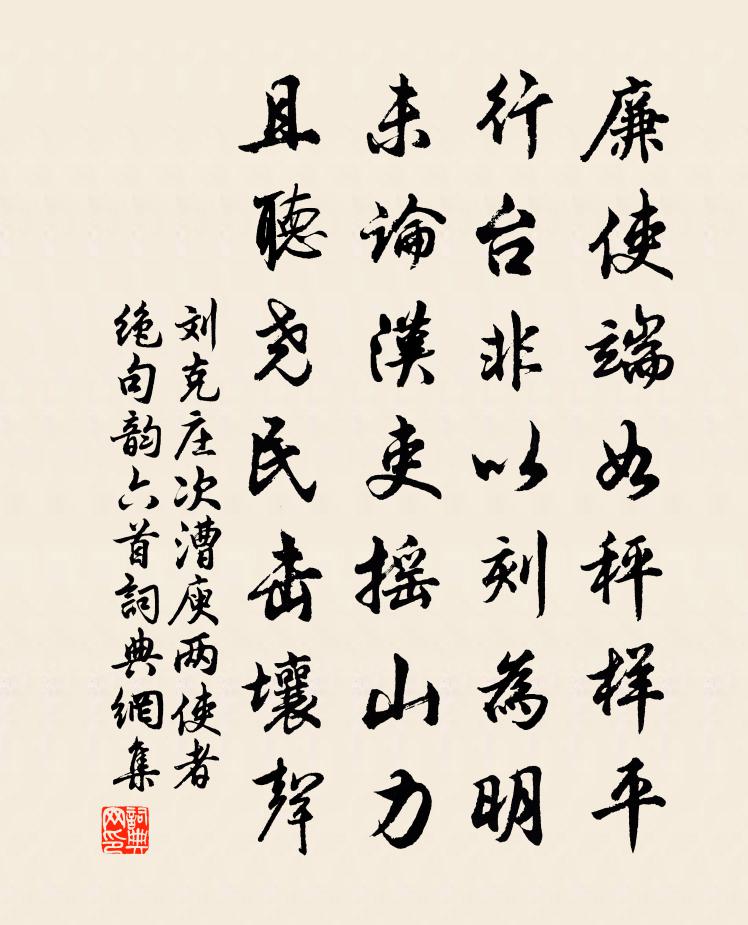 廉使端如秤样平
行台非以刻為明
未論漢吏摇山力
且聽尧民击壤聲
刘克庄次漕庾两使者
绝句韵六首詞典網集
詞典网印